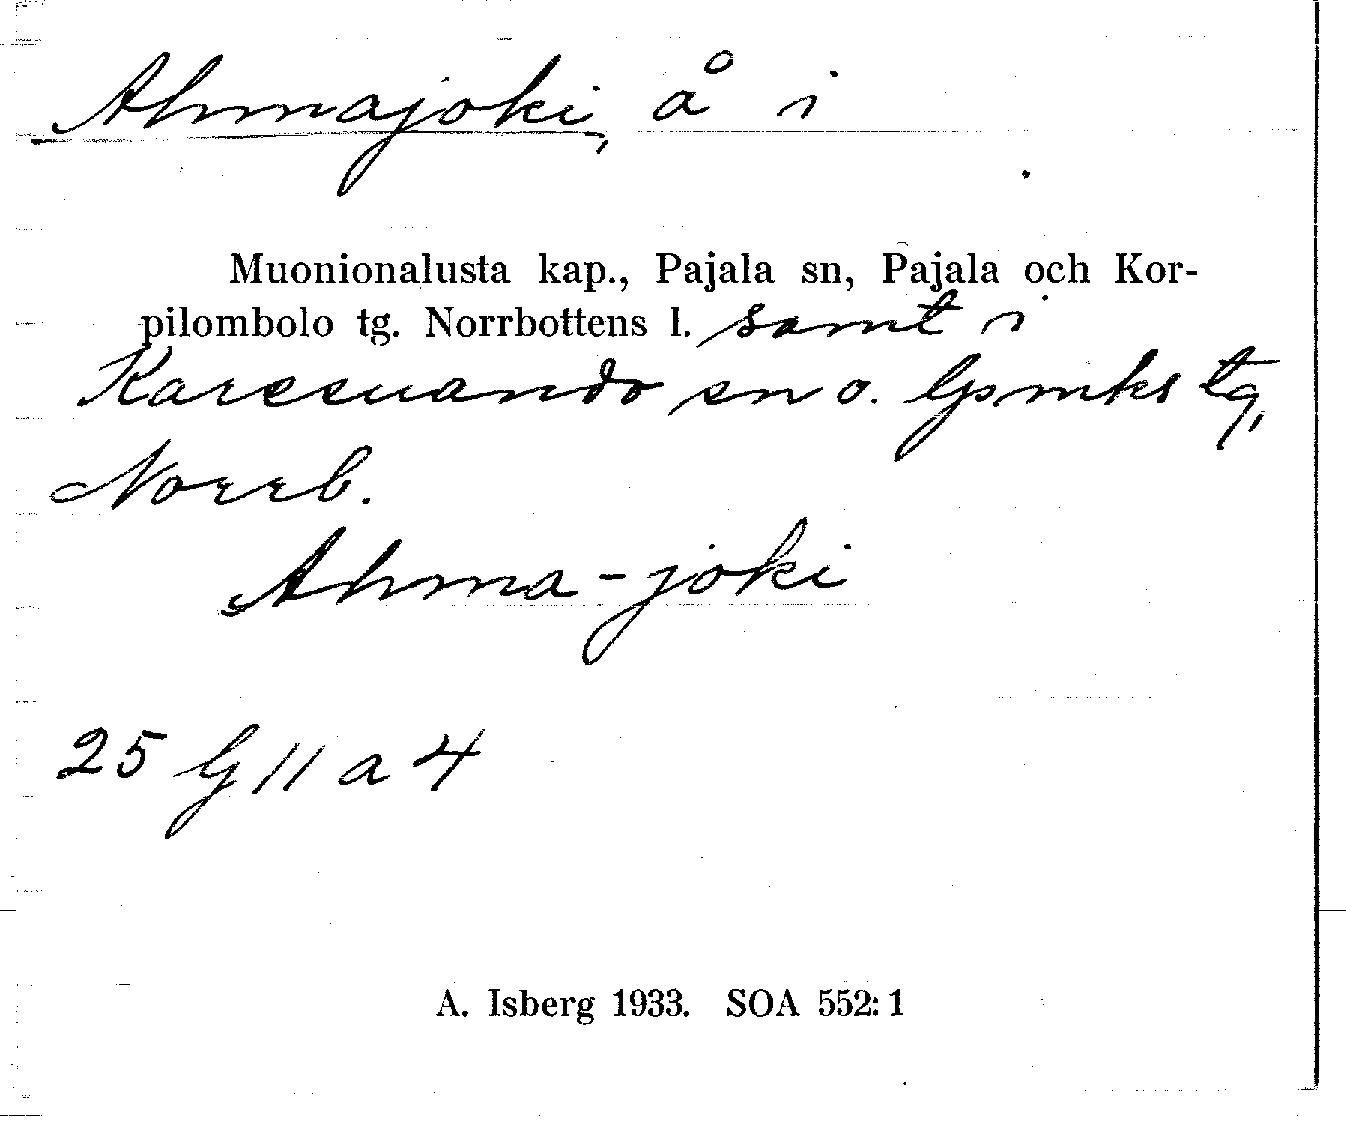 Ahmajoki, å i
Muonionalusta kap., Pajala sn, Pajala och Kor-
pilombolo tg. Norrbottens l. samt i
Karesuando sn o. lpmks tg,
Norrb.
Ahma-joki
25 G 11 a 4
A. Isberg 1933. SOA 552:1